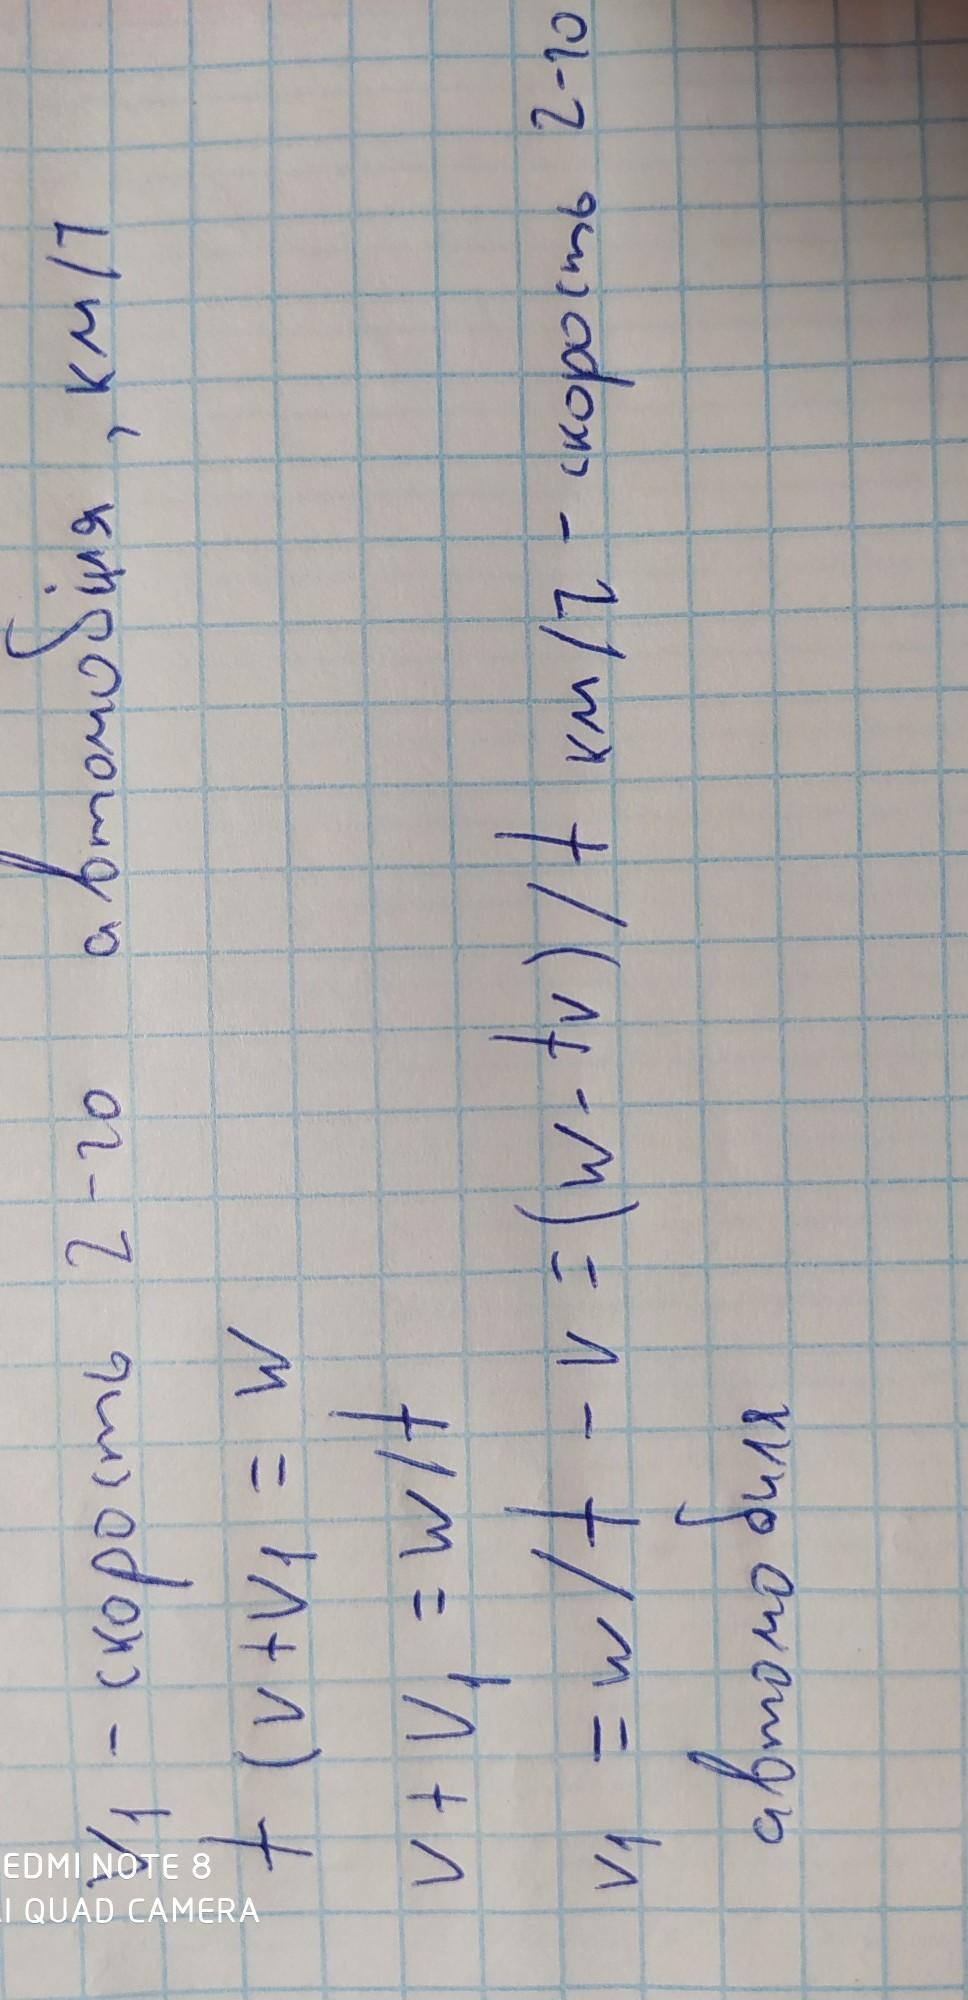 V₁ - скорость 2-го автомобіля, км/ч
t (v+V₁ = w
v + V₁ = w/t
v₁ = w/t - v = (w - tv)/t км/ч - скорость 2-го
автомобиля
EDMI NOTE 8
I QUAD CAMERA